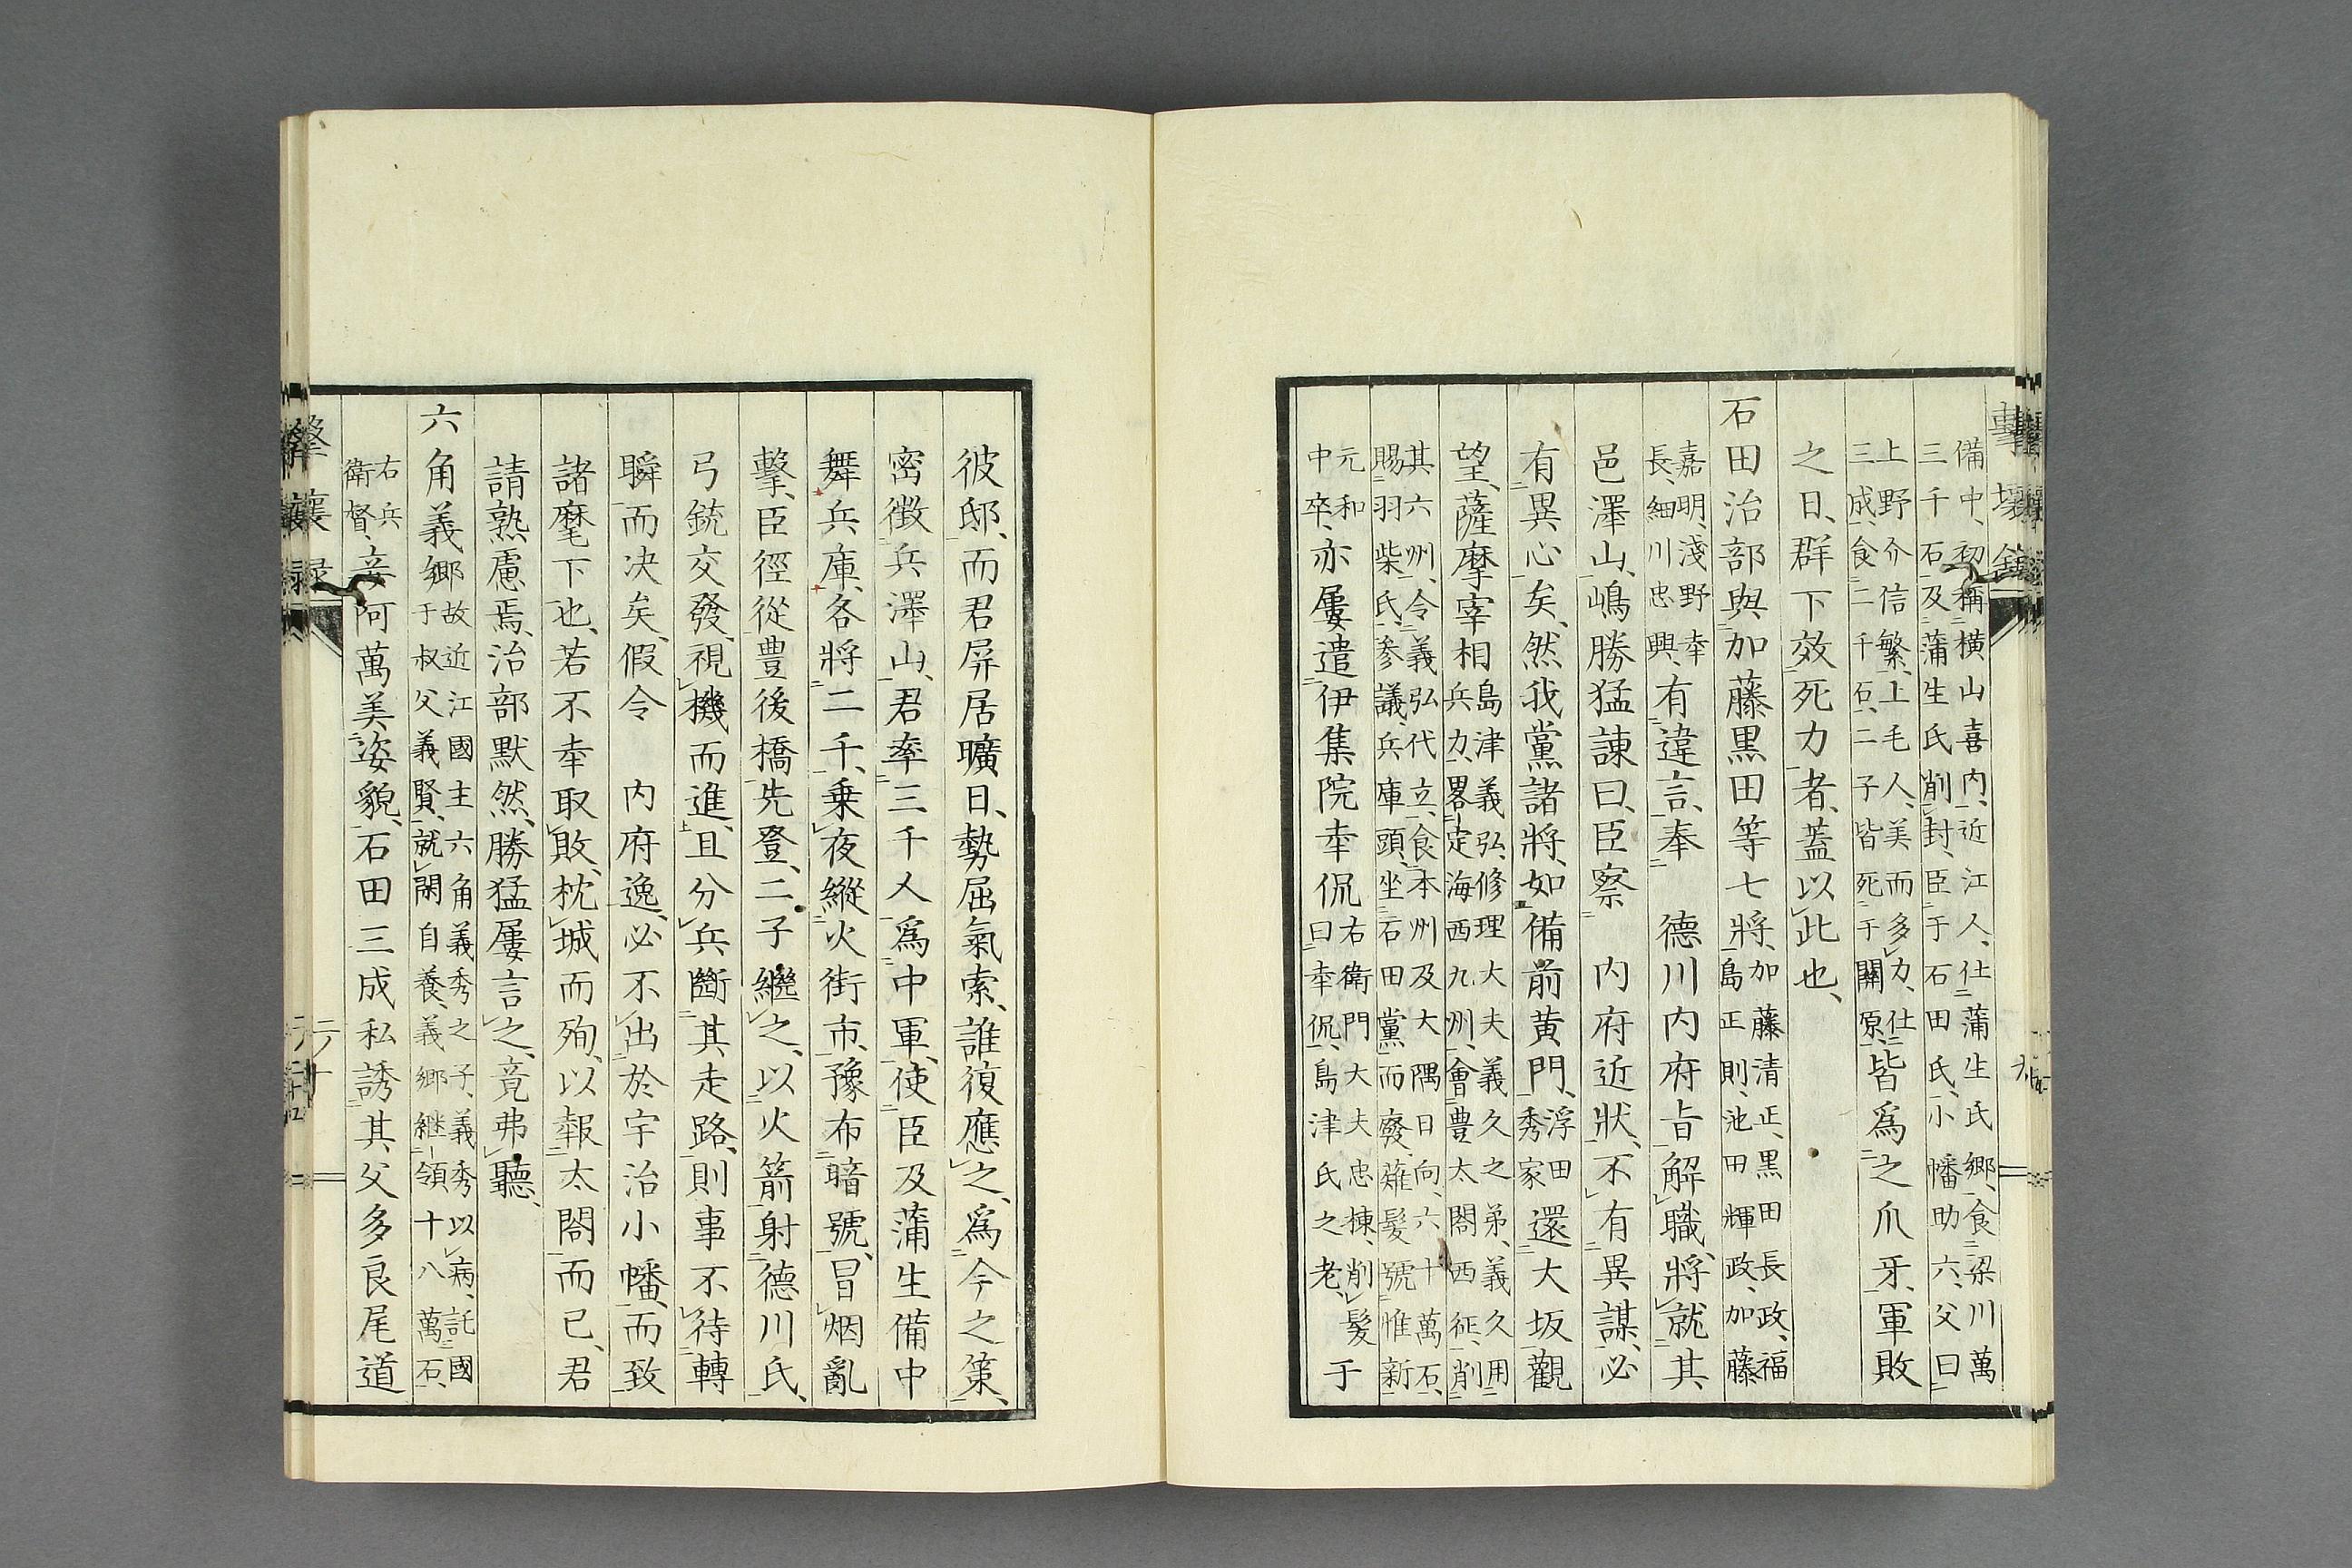 備中、初稱横山喜内、近江人、仕蒲生氏郷、食梁川萬
三千石、及蒲生氏削封、臣于石田氏、小幡助六、父曰
上野介信繁、上毛人、美而多力、仕
三成、食二千石、二子皆死于關原、皆爲之爪牙、軍敗
之日、群下效死力者、蓋以此也、
石田治部與加藤黒田等七將、加藤清正、黒田長政、福
島正則、池田輝政、加藤
嘉明、淺野幸
長、細川忠興、有違言、奉 德川内府旨解職、將就其
邑澤山、嶋勝猛諫曰、臣察 内府近狀、不有異謀、必
有異心矣、然我黨諸將、如備前黄門、浮田
秀家還大坂、觀
望、薩摩宰相島津義弘、修理大夫義久之弟、義久用
兵力、畧定海西九州、會豊太閤西征、削
其六州、令義弘代立、食本州及大隅日向、六十萬石、
賜羽柴氏、參議、兵庫頭、坐石田黨而廢、薙髪號惟新
元和
中卒、亦屢遣伊集院幸侃右衛門大夫忠棟、削髪
曰幸侃、島津氏之老、于
彼邸、而君屏居曠日、勢屈氣索、誰復應之、爲今之策、
密徴兵澤山、君率三千人爲中軍、使臣及蒲生備中
舞兵庫、各將二千、乗夜縱火街市、豫布暗號、冒烟亂
擊、臣徑從豊後橋先登、二子繼之、以火箭射德川氏、
弓銃交發、視機而進、且分兵斷其走路、則事不待轉
瞬而决矣、假令 内府逸、必不出於宇治小幡、而致
諸麾下也、若不幸取敗、枕城而殉、以報太閤而已、君
請熟慮焉、治部默然、勝猛屢言之、竟弗聽、
六角義郷故近江國主六角義秀之子、義秀以病、託國
于叔父義賢、就閑自養、義郷継領十八萬石、
右兵
衛督、妾阿萬美姿貌、石田三成私誘其父多良尾道